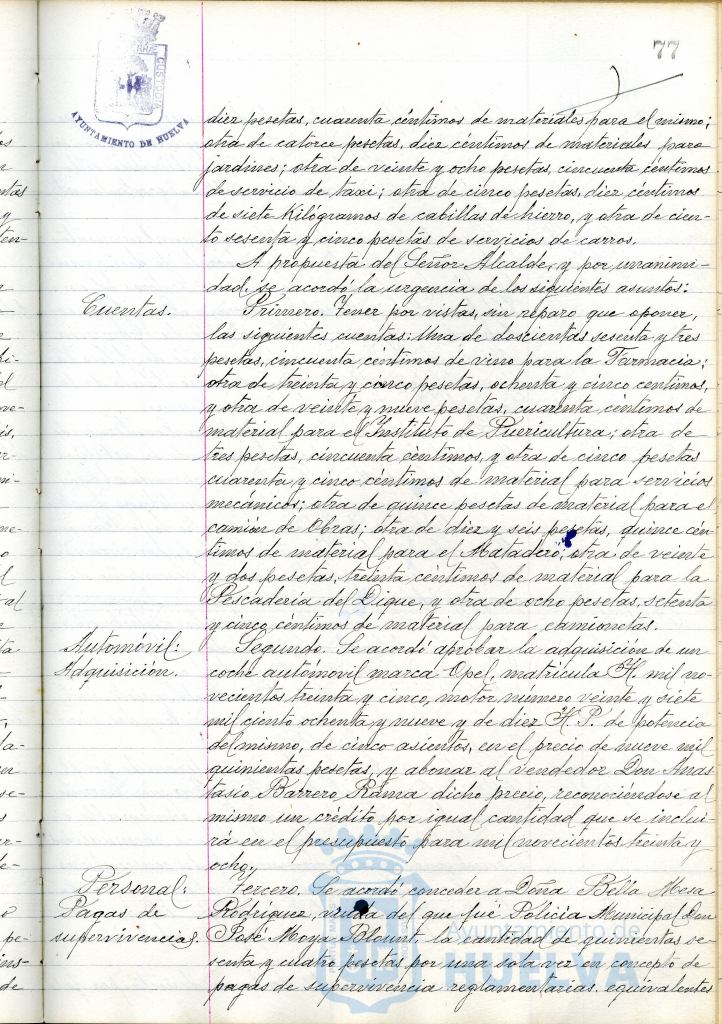 77
AYUNTAMIENTO DE HUELVA
diez pesetas, cuarenta céntimos de materiales para el mismo;
otra de catorce pesetas, diez céntimos de materiales para
jardines; otra de veinte y ocho pesetas, cincuenta céntimos
de servicio de taxi; otra de cinco pesetas, diez céntimos
de siete Kilógramos de cabillas de hierro, y otra de cien-
to sesenta y cinco pesetas de servicios de carros.
A propuesta del Señor Alcalde, y por unanimi-
dad, se acordó la urgencia de los siguientes asuntos:
Cuentas.
Primero. Tener por vistas, sin reparo que oponer,
las siguientes cuentas: Una de doscientas sesenta y tres
pesetas, cincuenta céntimos de vino para la Farmacia;
otra de treinta y cinco pesetas, ochenta y cinco centimos,
y otra de veinte y nueve pesetas, cuarenta céntimos de
material para el Instituto de Puericultura; otra de
tres pesetas, cincuenta céntimos, y otra de cinco pesetas
cuarenta y cinco céntimos de material para servicios
mecánicos; otra de quince pesetas de material para el
camión de Obras; otra de diez y seis pesetas, quince cén-
timos de material para el Matadero; otra de veinte
y dos pesetas, treinta céntimos de material para la
Pescadería del Dique, y otra de ocho pesetas, setenta
y cinco céntimos de material para camionetas.
Automóvil:
Adquisición.
Segundo. Se acordó aprobar la adquisición de un
coche automóvil marca Opel, matrícula H. mil no-
vecientos treinta y cinco, motor número veinte y siete
mil ciento ochenta y nueve y de diez H.P. de potencia
del mismo, de cinco asientos, en el precio de nueve mil
quinientas pesetas, y abonar al vendedor Don Anas
tasio Barrero Rama dicho precio, reconociéndose al
mismo un crédito por igual cantidad que se inclui
rá en el presupuesto para mil novecientos treinta y
ocho.
Personal:
Pagas de
supervivencias.
Tercero. Se acordó conceder a Doña Bella Mesa
Rodríguez, viuda del que fué Policía Municipal Don
José Moya Blount, la cantidad de quinientas se-
senta y cuatro pesetas por una sola vez en concepto de
pagas de supervivencia reglamentarias, equivalentes
Ayuntamiento de
HUELVA